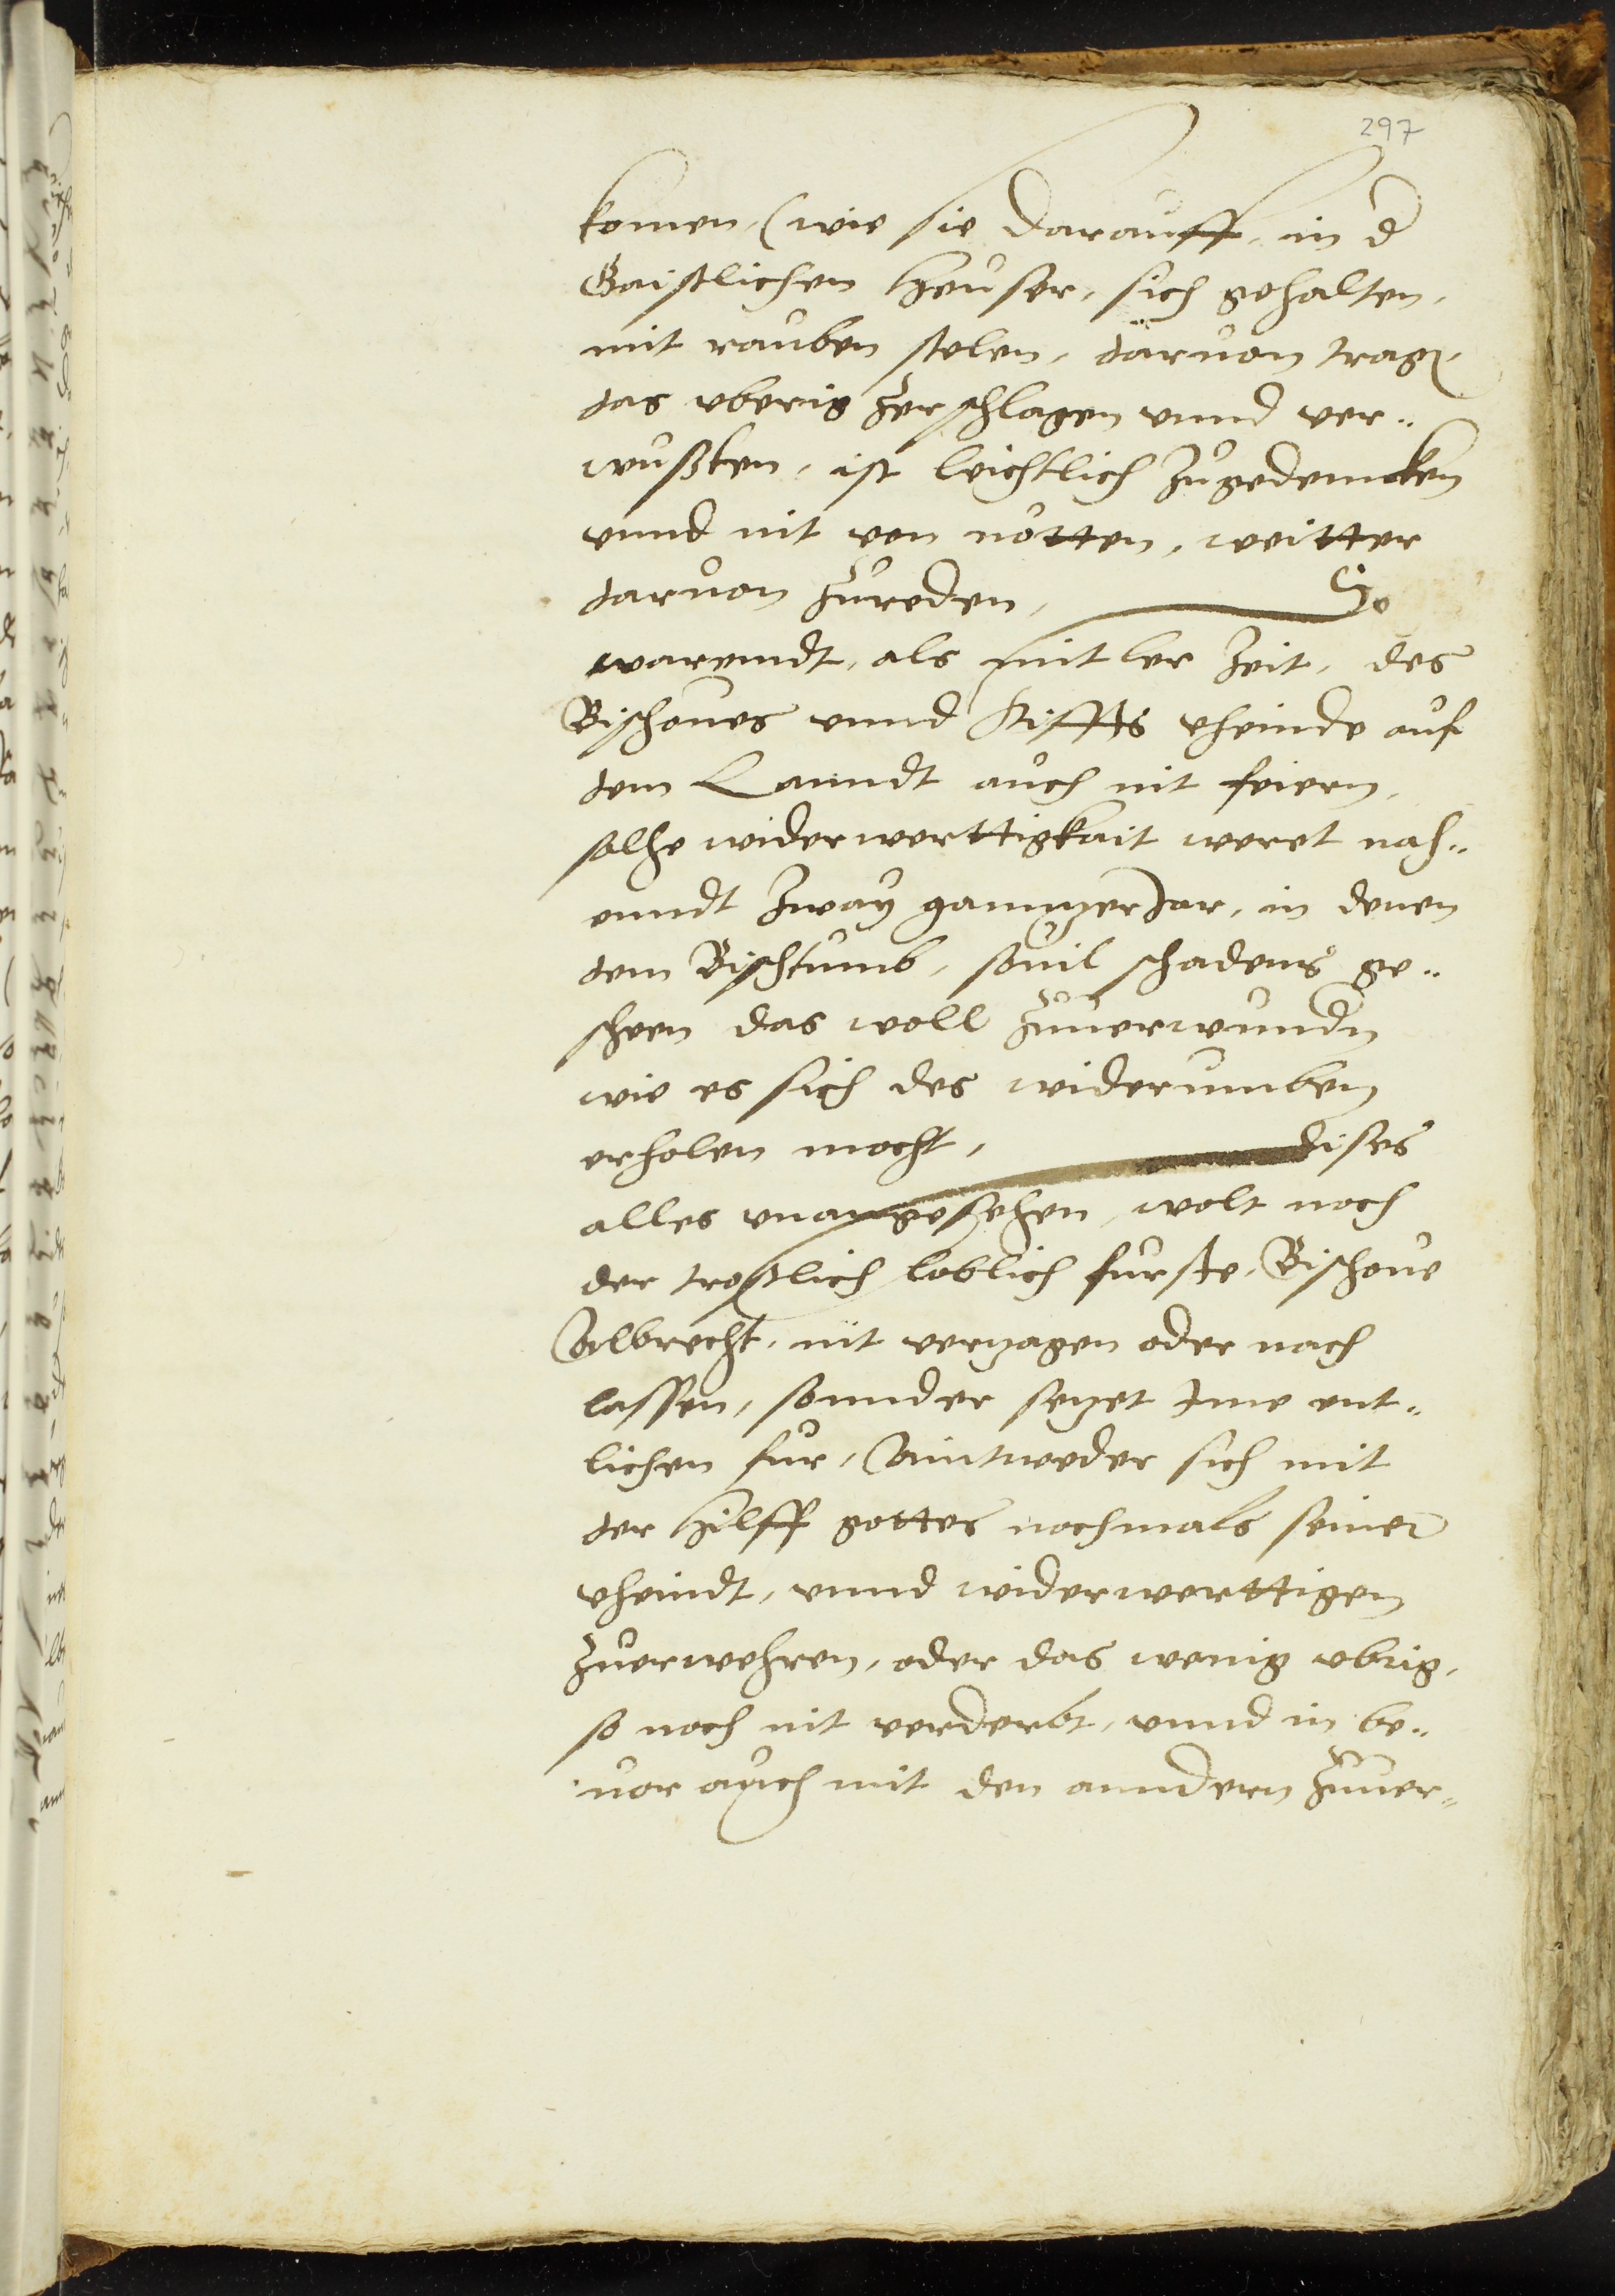 297
komen, (wie sie darauff, in d
Gaistlichen heuser, sich gehalten,
mit rauben stelen, daruon trag,
das vberig zerschlagen vnnd ver¬
wussten, ist leichtlich zugedenncken
vnnd nit von nötten, weitter
daruon zureden, So
warenndt, als mitler Zeit, des
Bischoues vnnd Stiffts vheinde auf
dem Lanndt auch nit feiern,
solhe widerwerttigkait weret nah¬
enndt zway gannzer Jar, in denen
dem Bischtumb, souil schadens ge¬
scheen das woll zuuerwundn
wie es sich des widerumben
erholen mocht, dises
alles vnangesehen, wolt noch
der trostlich loblich furste, Bischoue
Albrecht, nit verzagen oder nach
lassen, sonnder sezet Jme ent¬
lichen fur, Aintweder sich mit
der hilff gottes nochmals seiner
vheindt, vnnd widerwerttigen
zuerwehren, oder das wenig vbrig,
so noch nit verderbt, vnnd in be¬
uor auch mit den anndern zuuer¬